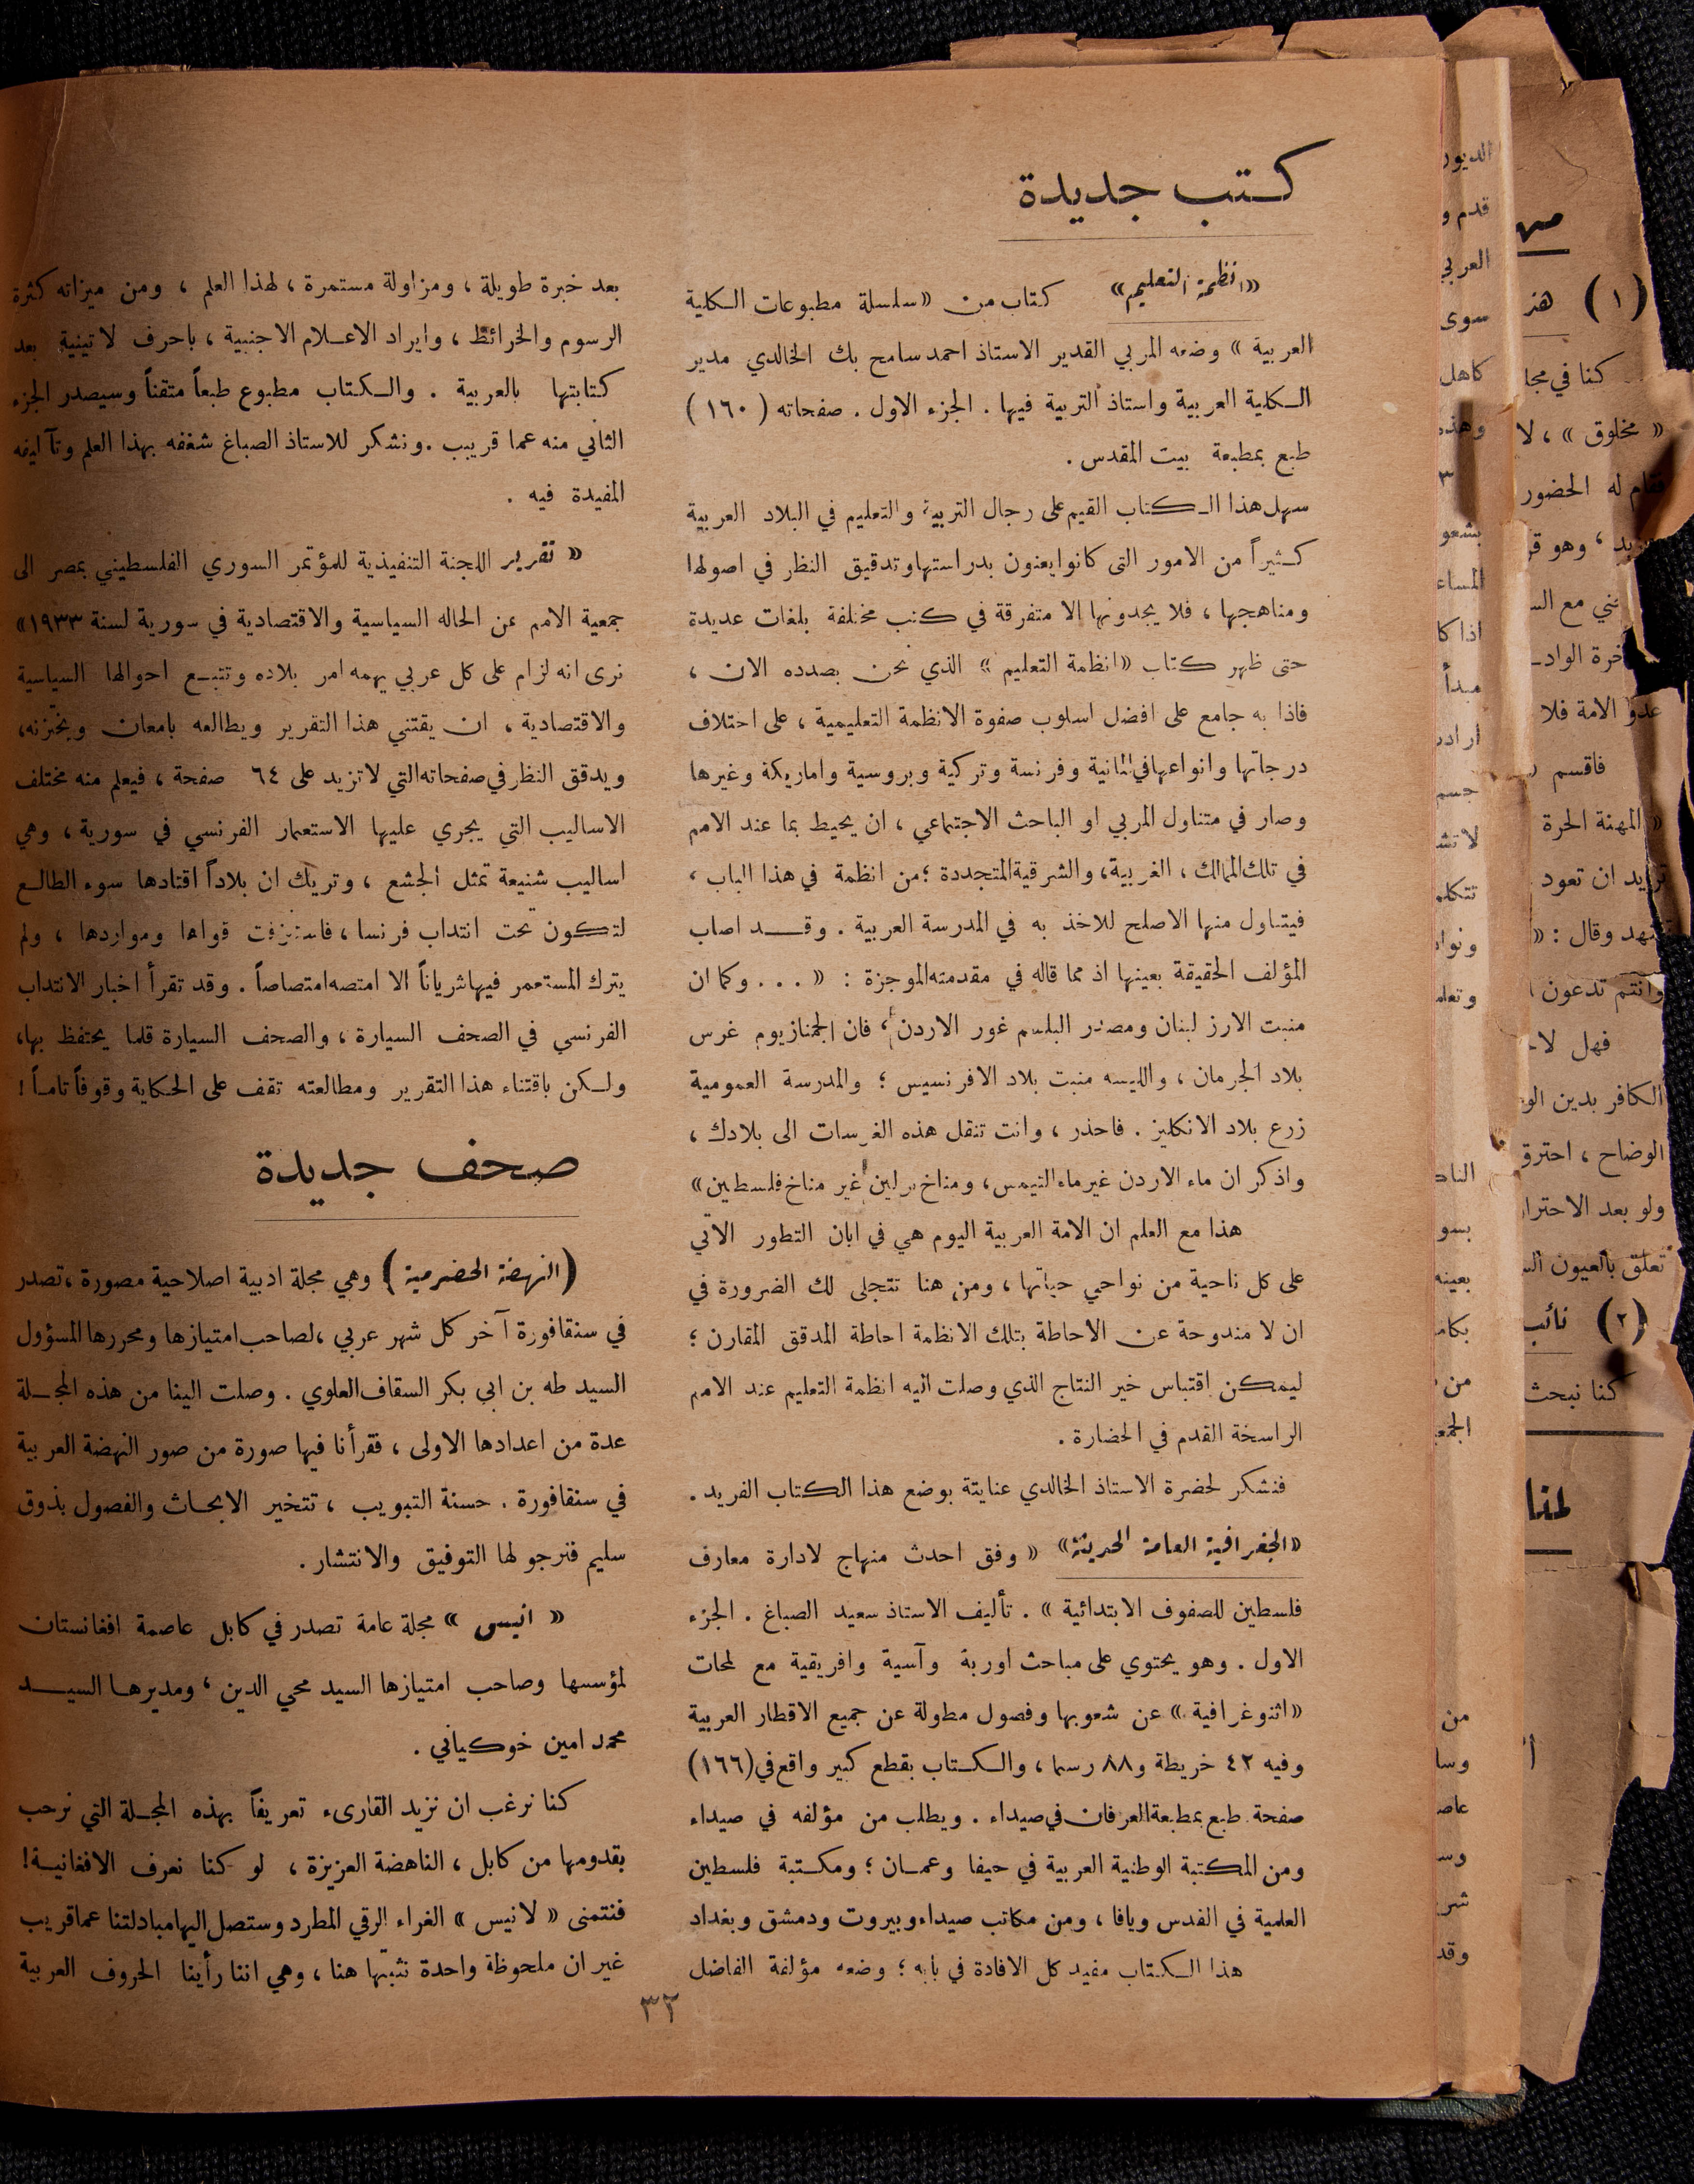 كتب جديدة
«انظمة التعليم» كتاب من «سلسلة مطبوعات الكلية
العربية » وضعه المربي القدير الاستاذ احمد سامح بك الخالدي مدير
الكلية العربية واستاذ التربية فيها . الجزء الاول . صفحاته ( ١٦٠ )
طبع بمطبعة بيت المقدس .
سهل هذا الكتاب القيم على رجال التربية والتعليم في البلاد العربية
كثيراً من الامور التي كانوا يعنون بدراستها وتدقيق النظر في اصولها
ومناهجها ، فلا يجدونها الا متفرقة في كتب مختلفة بلغات عديدة
حتى ظهر كتاب «انظمة التعليم » الذي نحن بصدده الان ،
فاذا به جامع على افضل اسلوب صفوة الانظمة التعليمية ، على اختلاف
درجاتها وانواعها في المانية وفرنسة وتركية وبروسية واماريكة وغيرها
وصار في متناول المربي او الباحث الاجتماعي ، ان يحيط بما عند الامم
في تلك الممالك ، الغربية ، والشرقية المتجددة ؛ من انظمة في هذا الباب ،
فيتناول منها الاصلح للاخذ به في المدرسة العربية . وقد اصاب
المؤلف الحقيقة بعينها اذ مما قاله في مقدمته الموجزة : « . . . وكما ان
منبت الارز لبنان ومصدر البلسم غور الاردن ، فان الجمنازيوم غرس
بلاد الجرمان ، والليسه منبت بلاد الافرنسيس ؛ والمدرسة العمومية
زرع بلاد الانكليز . فاحذر ، وانت تنقل هذه الغرسات الى بلادك ،
واذكر ان ماء الاردن غير ماء التيمس ، ومناخ برلين غير مناخ فلسطين»
هذا مع العلم ان الامة العربية اليوم هي في ابان التطور الاتي
على كل ناحية من نواحي حياتها ، ومن هنا تتجلى لك الضرورة في
ان لا مندوحة عن الاحاطة بتلك الانظمة احاطة المدقق المقارن ؛
ليمكن اقتباس خير النتاج الذي وصلت اليه انظمة التعليم عند الامم
الراسخة القدم في الحضارة .
فنشكر لحضرة الاستاذ الخالدي عنايتة بوضع هذا الكتاب الفريد .
«الجغرافية العامة الحديثة» « وفق احدث منهاج لادارة معارف
فلسطين للصفوف الابتدائية » . تأليف الاستاذ سعيد الصباغ . الجزء
الاول . وهو يحتوي على مباحث اوربة وآسية وافريقية مع لمحات
«اثنوغرافية » عن شعوبها وفصول مطولة عن جميع الاقطار العربية
وفيه ٤٢ خريطة و٨٨ رسما ، والكتاب بقطع كبير واقع في (١٦٦)
صفحة طبع بمطبعة العرفان في صيداء . ويطلب من مؤلفه في صيداء
ومن المكتبة الوطنية العربية في حيفا وعمان ؛ ومكتبة فلسطين
العلمية في القدس ويافا ، ومن مكاتب صيداء وبيروت ودمشق وبغداد
هذا الكتاب مفيد كل الافادة في بابه ؛ وضعه مؤلفة الفاضل
بعد خبرة طويلة ، ومزاولة مستمرة ، لهذا العلم ، ومن ميزاته كثرة
الرسوم والخرائط ، وايراد الاعلام الاجنبية ، باحرف لاتينية بعد
كتابتها بالعربية . والكتاب مطبوع طبعاً متقناً وسيصدر الجزء
الثاني منه عما قريبب . ونشكر للاستاذ الصباغ شغفه بهذا العلم وتآليفه
المفيدة فيه .
« تقرير اللجنة التنفيذية للمؤتمر السوري الفلسطيني بمصر الى
جمعية الامم عن الحاله السياسية والاقتصادية في سورية لسنة ١٩٣٣»
نرى انه لزام على كل عربي يهمه امر بلاده وتتبع احوالها السياسية
والاقتصادية ، ان يقتني هذا التقرير ويطالعه بامعان ويختزنه،
ويدقق النظر في صفحاته التي لا تزيد على ٦٤ صفحة ، فيعلم منه مختلف
الاساليب التي يجري عليها الاستعمار الفرنسي في سورية ، وهي
اساليب شنيعة تمثل الجشع ، وتريك ان بلاداً اقتادها سوء الطالع
لتكون تحت انتداب فرنسا ، فاستنزفت قواها ومواردها ، ولم
يترك المستعمر فيها شرياناً الا امتصه امتصاصاً . وقد تقرأ اخبار الانتداب
الفرنسي في الصحف السيارة ، والصحف السيارة قلما يحتفظ بها،
ولكن باقتناء هذا التقرير ومطالعته تقف على الحكاية وقوفاً تاماً !
صحف جديدة
(النهضة الحضرمية) وهي مجلة ادبية اصلاحية مصورة ، تصدر
في سنقافورة آخر كل شهر عربي ، لصاحب امتيازها ومحررها المسؤول
السيد طه بن ابي بكر السقاف العلوي . وصلت الينا من هذه المجلة
عدة من اعدادها الاولى ، فقرأنا فيها صورة من صور النهضة العربية
في سنقافورة . حسنة التبويب ، تتخير الابحاث والفصول بذوق
سليم فنرجو لها التوفيق والانتشار .
« انيس » مجلة عامة تصدر في كابل عاصمة افغانستان
لمؤسسها وصاحب امتيازها السيد محي الدين ، ومديرها السيد
محمد امين خوكياني .
كنا نرغب ان نزيد القارىء تعريفاً بهذه المجلة التي نرحب
بقدومها من كابل ، الناهضة العزيزة ، لو كنا نعرف الافغانية!
فنتمنى « لانيس » الغراء الرقي المطرد وستصل اليها مبادلتنا عما قريب
غير ان ملحوظة واحدة نثبتها هنا ، وهي اننا رأينا الحروف العربية
٣٢
الديور
قدم و
العربي
سوى
كاهل
وهذه
٣
بشعو
المساء
اذا كا
مبدأ
اراد
جسم
لا تشـ
تتكلم
ونوا
وتعلم
الناد
بسو
بعينه
بكامـ
من
الجمعـ
من
وسا
عاصـ
وسـ
شر
وقد
(١) هذ
كنا في مجا
« مخلوق » ، لا
فقام له الحضور
، وهو قر
ني مع السـ
خرة الواد
عدو الامة فلا
فاقسم
« المهنة الحرة
تريد ان تعود
تنهد وقال : «
وانتم تدعون ا
فهل لا
الكافر بدين الو
الوضاح ، احترق
ولو بعد الاحترا
تعلق بالعيون السـ
(٢) نائب
كنا نبحث
لمنا